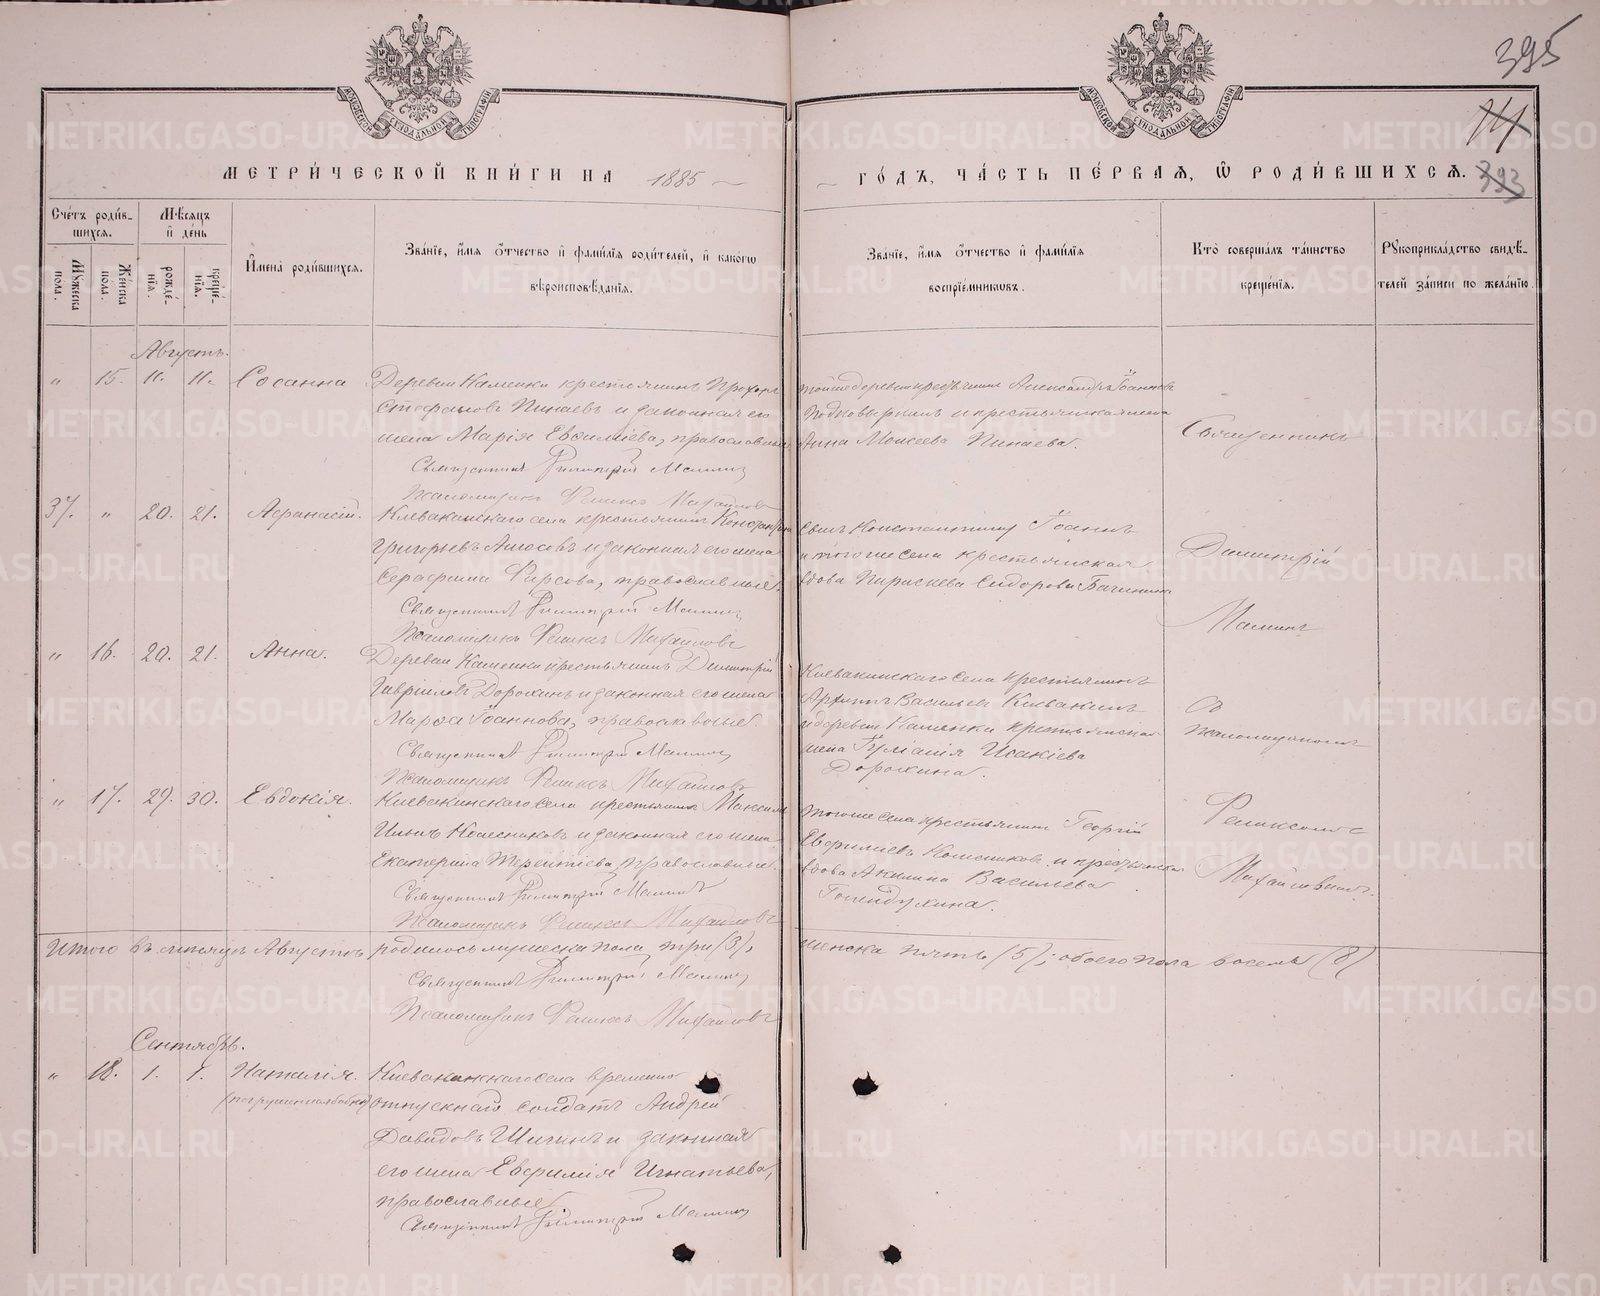 395
141
393
МОСКОВСКОЙ СѴНОДАЛЬНОЙ ТИПОГРАФІИ
МОСКОВСКОЙ СѴНОДАЛЬНОЙ ТИПОГРАФІИ
МЕТРИ́ЧЕСКОЙ КНИ́ГИ НА 1885
ГО́ДЪ, ЧА́СТЬ ПЕ́РВАЯ, Ѡ РОДИ́ВШИХСЯ.
Сче́тъ роди́в-
шихся.
Мѣ́сяцъ
и҆ де́нь
Му́жеска пола.
Же́нска пола.
рожде́-
нїя.
креще́-
нїя.
И҆мена̀ роди́вшихся.
Зва́нїе, и҆́мя ѻ҆́тчество и҆ фами́лїя роди́телей, и҆ какогѡ
вѣроисповѣ́данїя.
Зва́нїе, и҆́мя ѻ҆́тчество и҆ фами́лїя
воспрїе́мниковъ.
Кто̀ соверша́лъ та́инство
креще́нїя.
Рꙋкоприкла́дство свидѣ́-
телей за́писи по жела́нїю.
Августъ.
" 15. 11. 11. Сосанна
Деревни Каменки крестьянинъ Прохоръ
Стефановъ Пинаевъ и законная его
жена Марія Евсиміева, православные
Священникъ Димитрій Маминъ
Псаломщикъ Феликсъ Михайловъ
тойже деревни крестьянинъ Александръ Іоанновъ
Подковыркинъ и крестьянская жена
Анна Моисеева Пинаева.
Священникъ
37. " 20. 21. Афанасій.
Клевакинскаго села крестьянинъ Константинъ
Григорьевъ Амосовъ и законная его жена
Серафима Фирсова, православные.
Священникъ Димитрій Маминъ
Псаломщикъ Феликсъ Михайловъ
сынъ Константину Іоаннъ
и того же села крестьянская
вдова Параскева Сидорова
Димитрій
Маминъ
" 16. 20. 21. Анна.
Деревни Каменки крестьянинъ Димитрій
Гавріиловъ Дорохинъ и законная его жена
Марфа Іоаннова, православные
Священникъ Димитрій Маминъ
Псаломщикъ Феликсъ Михайловъ
Клевакинскаго села крестьянинъ
Васильевъ Клевакинъ
и деревни Каменки крестьянская
жена Іуліанія Исакіева
Дорохина.
Съ
псаломщикомъ
" 17. 29. 30. Евдокія.
Клевакинскаго села крестьянинъ Максимъ
Ильинъ Колесниковъ и законная его жена
Екатерина Терентіева, православные.
Священникъ Димитрій Маминъ
Псаломщикъ Феликсъ Михайловъ
того же села крестьянинъ Георгій
Евфиміевъ Колесниковъ и крестьянская
вдова Акилина Васильева
Феликсомъ
Михайловымъ.
Итого въ мѣсяцѣ Августѣ родилось мужеска пола три (3),
женска пять (5); обоего пола восемь (8)
Священникъ Димитрій Маминъ
Псаломщикъ Феликсъ Михайловъ
Сентябрь.
" 18. 1. 1. Наталія.
Клевакинскаго села временно
отпускной солдатъ Андрей
Давидовъ и законная
его жена Евфимія Игнатьева,
православные
Священникъ Димитрій Маминъ
METRIKI.GASO-URAL.RU